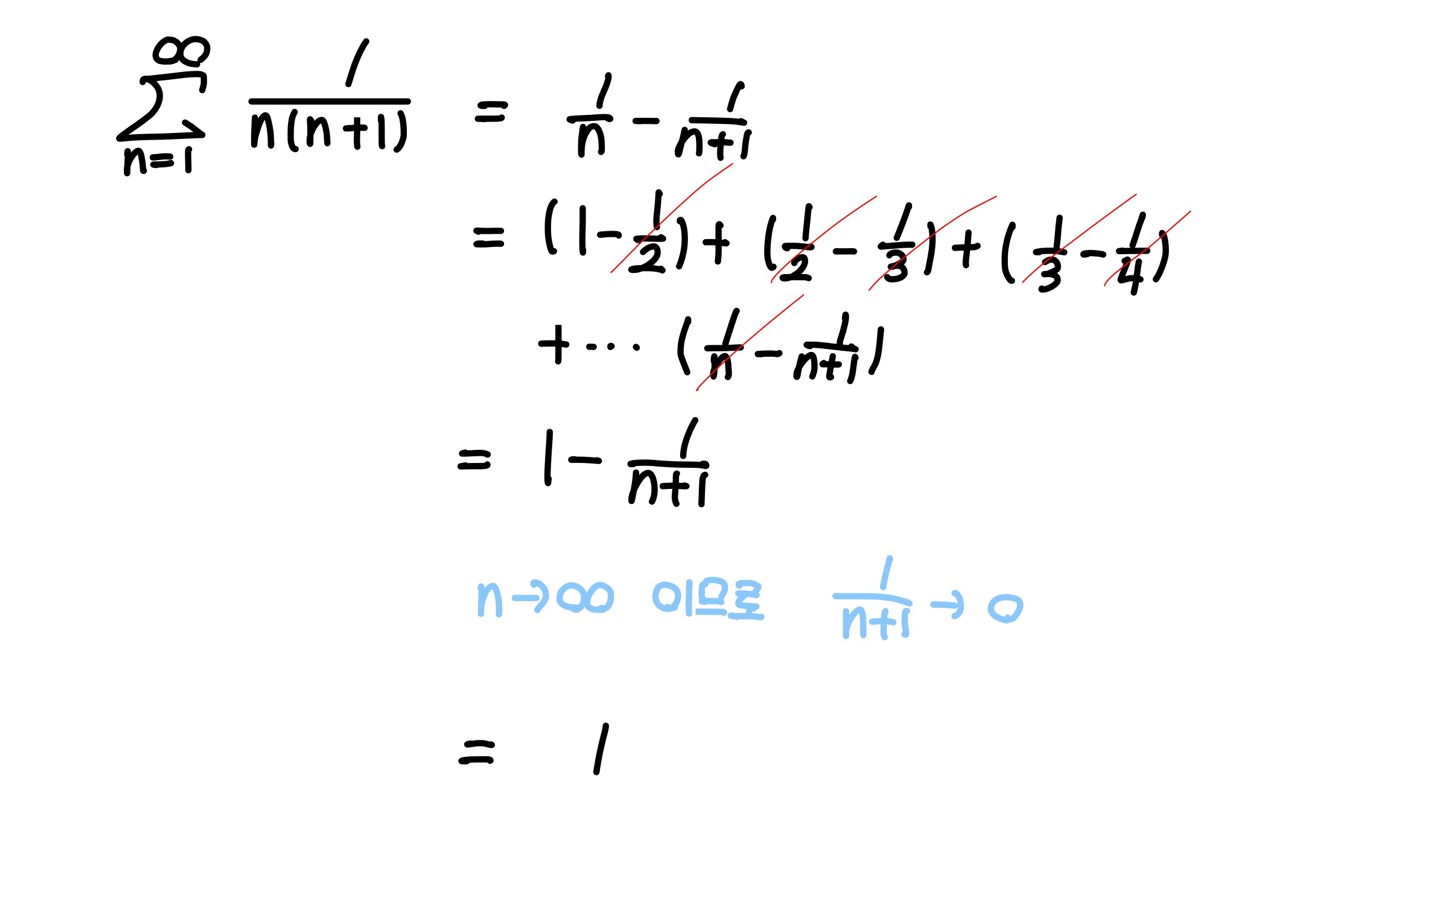 ∞∑n=1 1/n(n+1) = 1/n - 1/n+1
= (1-1/2) + (1/2 - 1/3) + (1/3 - 1/4)
+ ... (1/n - 1/n+1)
= 1 - 1/n+1
n→∞ 이므로 1/n+1 → 0
= 1